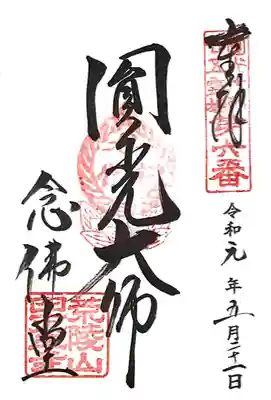 奉拝
第六番
令和元年五月二十一日
圓光大師
念佛堂
荒陵山